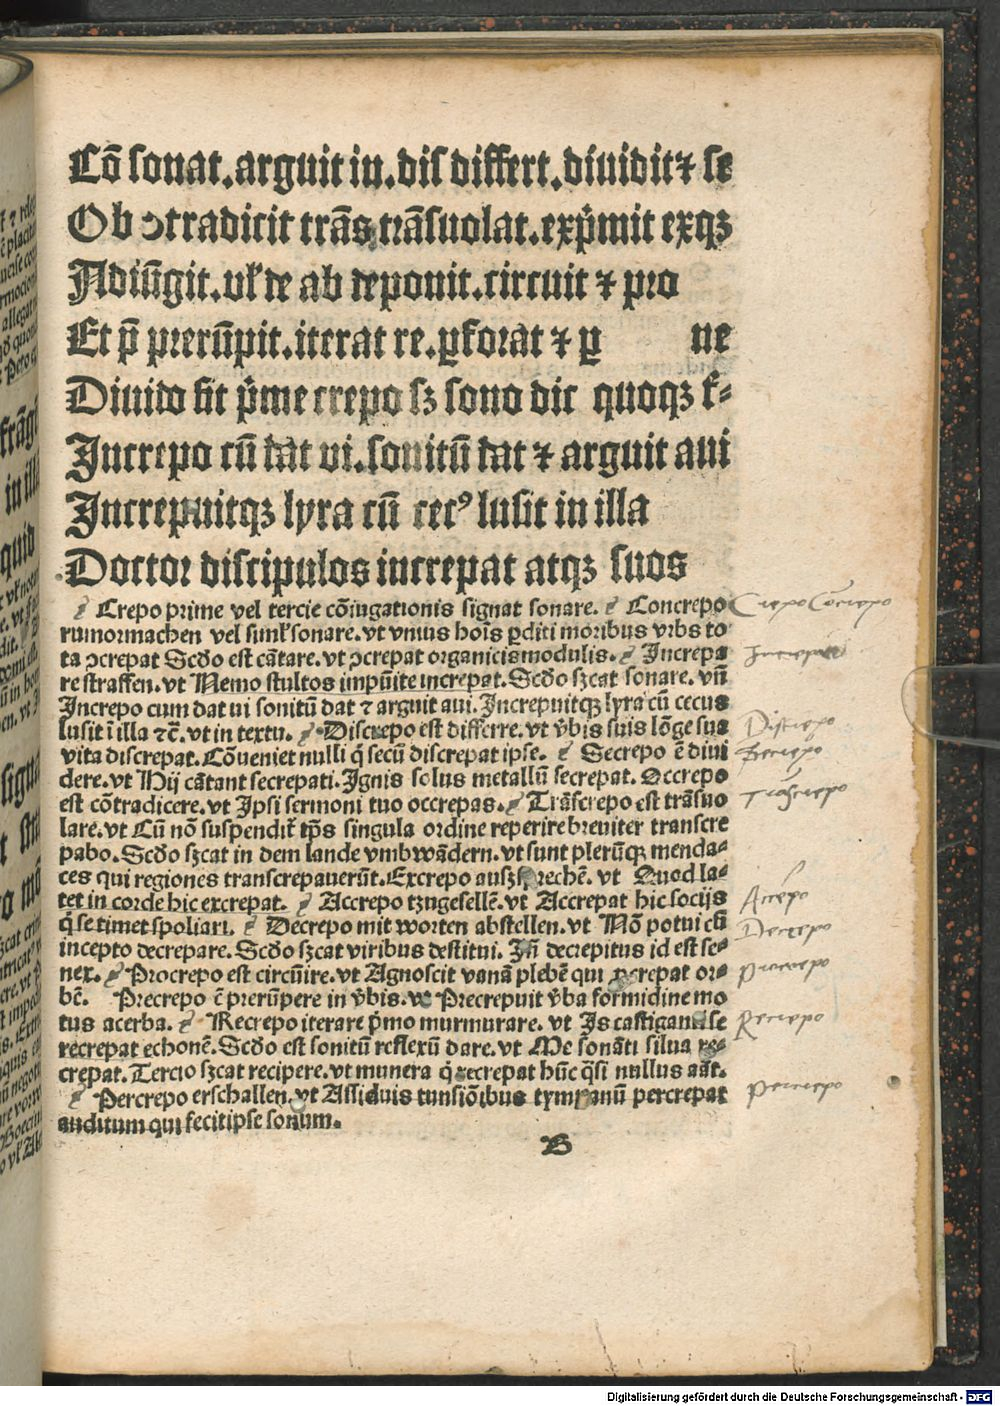 Cō sonat.arguit in.dis differt.diuidit⁊ se
Ob ↄtradicit trās trāsuolat.exp̄mit exqꝫ
Adiūgit.vl̕ de ab deponit.circuit ⁊ pro
Et p̄ prerūpit.iterat re.ꝑforat ⁊ ꝑ ne
Diuido fit p̄me crepo sꝫ sono dic quoqꝫ t̕-
Increpo cū dat ui.sonitū dat ⁊ arguit aui
Increpuitqꝫ lyra cū cecꝰ lusit in illa
Doctor discipulos increpat atqꝫ suos
Crepo prime vel tercie cōiugationis signat sonare. Concrepo
rumormachen vel sīml̕sonare.vt vnius hoīs ꝑditi moribus vrbs to
ta ↄcrepat Scdo est cātare.vt ↄcrepat organicis modulis. Increpa
re straffen.vt Nemo stultos impūite increpat.Scdo sꝫcat sonare.vn̄
Increpo cum dat ui sonitū dat ⁊ arguit aui.Increpuitqꝫ lyra cū cecus
lusit ī illa ⁊c̄.vt in textu. Discrepo est differre.vt v̄bis suis lōge sua
vita discrepat.Cōueniet nulli q̄ secū discrepat ipse. Secrepo ē diui
dere.vt Hij cātant secrepati.Ignis solus metallū secrepat.Occrepo
est cōtradicere.vt Ipsi sermoni tuo occrepas. Trāscrepo est trāsuo
lare.vt Cū nō suspendit̄ tp̄s singula ordine reperire breuiter transcre
pabo.Scdo sꝫcat in dem lande vmbwādern.vt sunt plerūqꝫ menda-
ces qui regiones transcrepauerūt.Excrepo auszsprechē. vt Quod la-
tet in corde hic excrepat. Accrepo tzugesellē.vt Accrepat hic socijs
q̄ se timet spoliari. Decrepo mit worten abstellen.vt Nō potui cū
incepto decrepare.Scdo sꝫcat viribus destitui. Jn̄ decrepitus id est se-
nex. Procrepo est circūire.vt Agnoscit vanā plebē qui ꝓcrepat or-
bē. Precrepo ē prerūpere in v̄bis.vt Precrepuit v̄ba formidine mo
tus acerba. Recrepo iterare p̄mo murmurare. vt Is castigami se
recrepat echonē.Scdo est sonitū reflexū dare.vt Me sonāti silua re-
crepat.Tercio sꝫcat recipere.vt munera q̄ recrepat hūc q̄si nullus aāt.
Percrepo erschallen.vt Assiduis tunsiōibus tympanū percrepat
auditum qui fecit ipse sonum.
B
Crepo Concrepo
Increpare
Discrepo
Secrepo
Trāscrepo
Accrepo
Decrepo
Procrepo
Recrepo
Percrepo
Digitalisierung gefördert durch die Deutsche Forschungsgemeinschaft - DFG